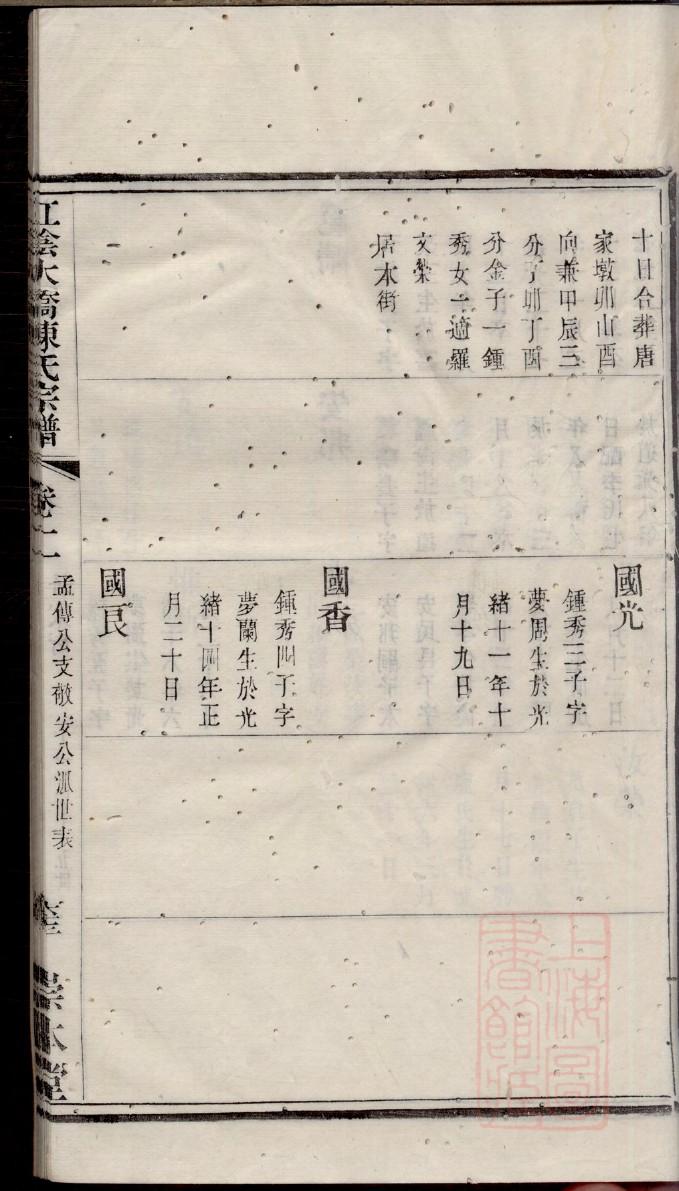 十日合葬唐
家墩卯山酉
向兼甲辰三
分丁卯丁酉
分金子一鍾
秀女一適羅
文榮
居本街
國光
鍾秀三子字
夢周生於光
緒十一年十
月十九日
國香
鍾秀四子字
夢蘭生於光
緒十四年正
月二十日
國良
江陰大橋陳氏宗譜
卷十一
孟傳公支敬安公派世表
宗本堂
上海圖
書館藏